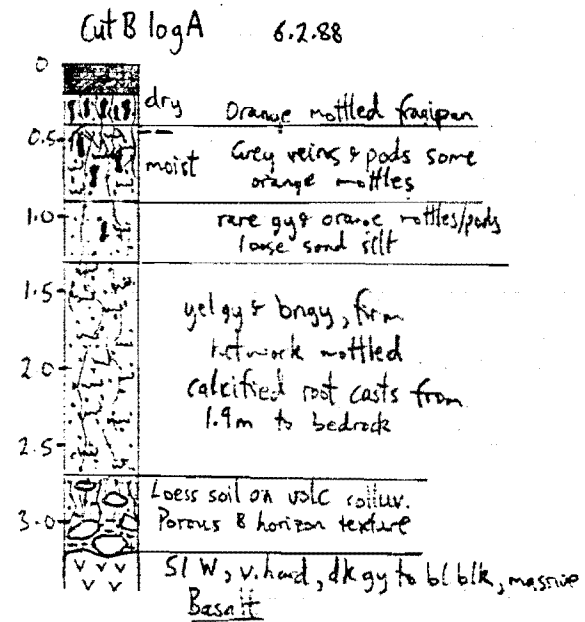 Cut B log A 6.2.88
0
dry Orange mottled fragipan
0.5
moist Grey veins & pods some
orange mottles
1.0
rare gy & orange mottles/pods
loose sand silt
1.5
yel gy & bngy, firm
network mottled
2.0
calcified root casts from
1.9m to bedrock
2.5
Loess soil on volc colluv.
3.0 Porous B horizon texture
Sl W, v. hard, dk gy to bl blk, massive
Basalt